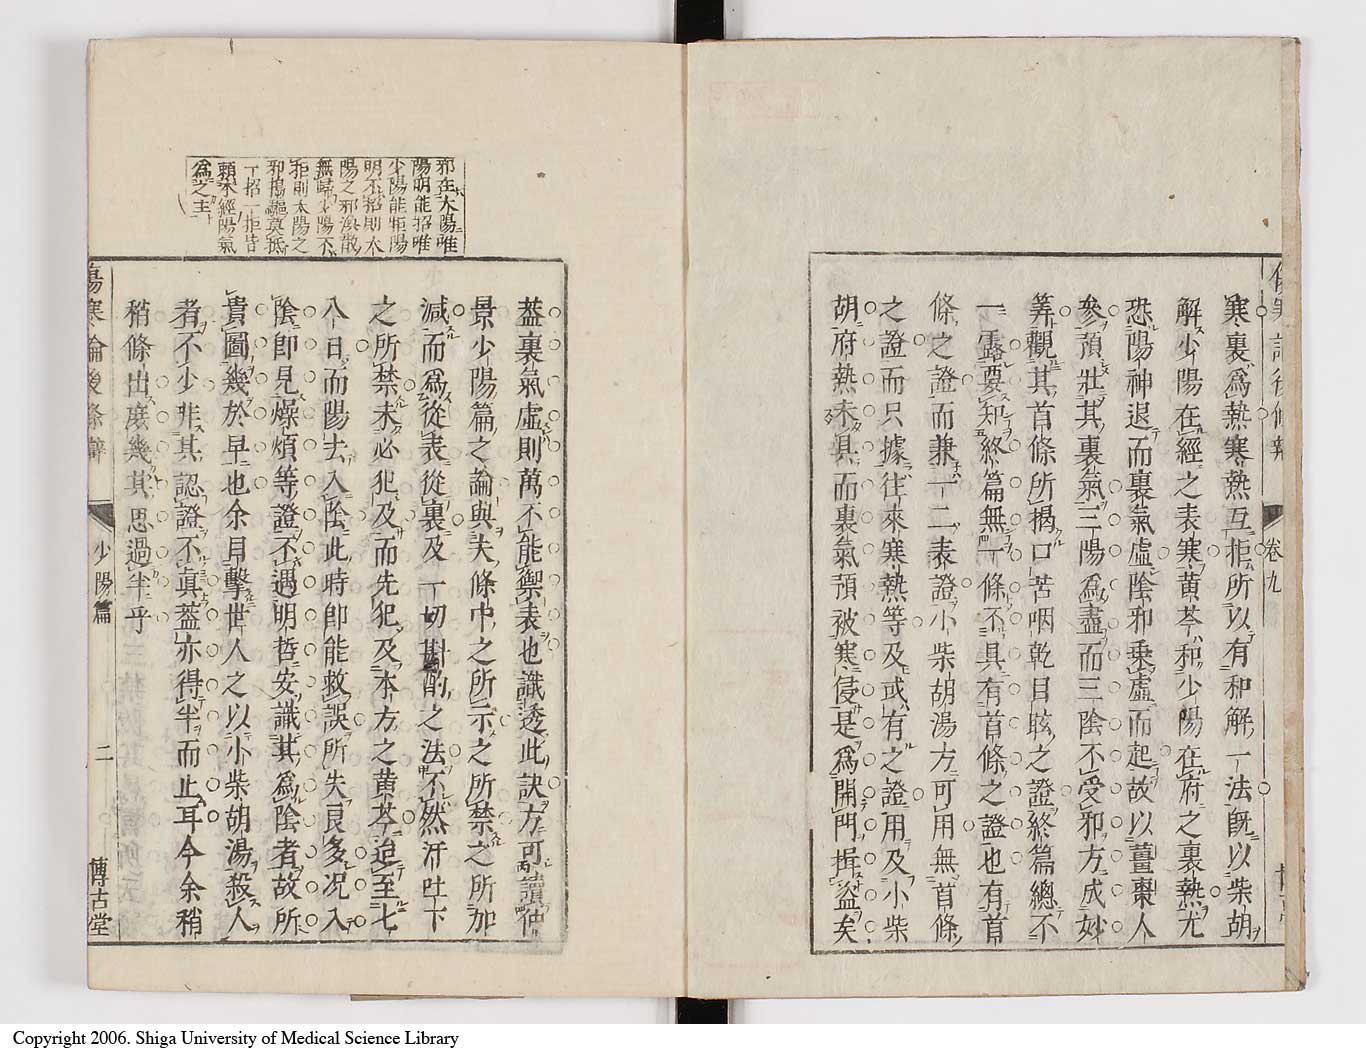 傷寒論後條辨
卷九
寒裏爲熱寒熱互拒所以有和解一法旣以柴胡
解少陽在經之表寒黃芩和少陽在府之裏熱尤
恐陽神退而裏氣虛陰邪乘虛而起故以薑棗人
參預壯其裏氣三陽爲盡而三陰不受邪方成妙
筭觀其首條所揭口苦咽乾目眩之證終篇總不
一露要知終篇無一條不具有首條之證也有首
條之證而兼一二表證小柴胡湯方可用無首條
之證而只據往來寒熱等及或有之證用及小柴
胡府熱未具而裏氣預被寒侵是爲開門揖盜矣
邪在太陽唯
陽明能招唯
少陽能拒陽
明不招則太
陽之邪渙散
無歸少陽不
拒則太陽之
邪搗驅莫抵
一招一拒皆
賴本經陽氣
爲之主
蓋裏氣虛則萬不能禦表也識透此訣方可讀仲
景少陽篇之論與夫條中之所示之所禁之所加
減而爲從表從裏及一切斟酌之法不然汗吐下
之所禁未必犯及而先犯及本方之黃芩迨至七
八日而陽去入陰此時卽能救誤所失良多况入
陰卽見燥煩等證不遇明哲安識其爲陰者故所
貴圖幾於早也余目擊世人之以小柴胡湯殺人
者不少非其認證不眞蓋亦得半而止耳今余稍
稍條出庶幾其思過半乎
傷寒論後條辯
少陽篇
二
博古堂
Copyright 2006. Shiga University of Medical Science Library